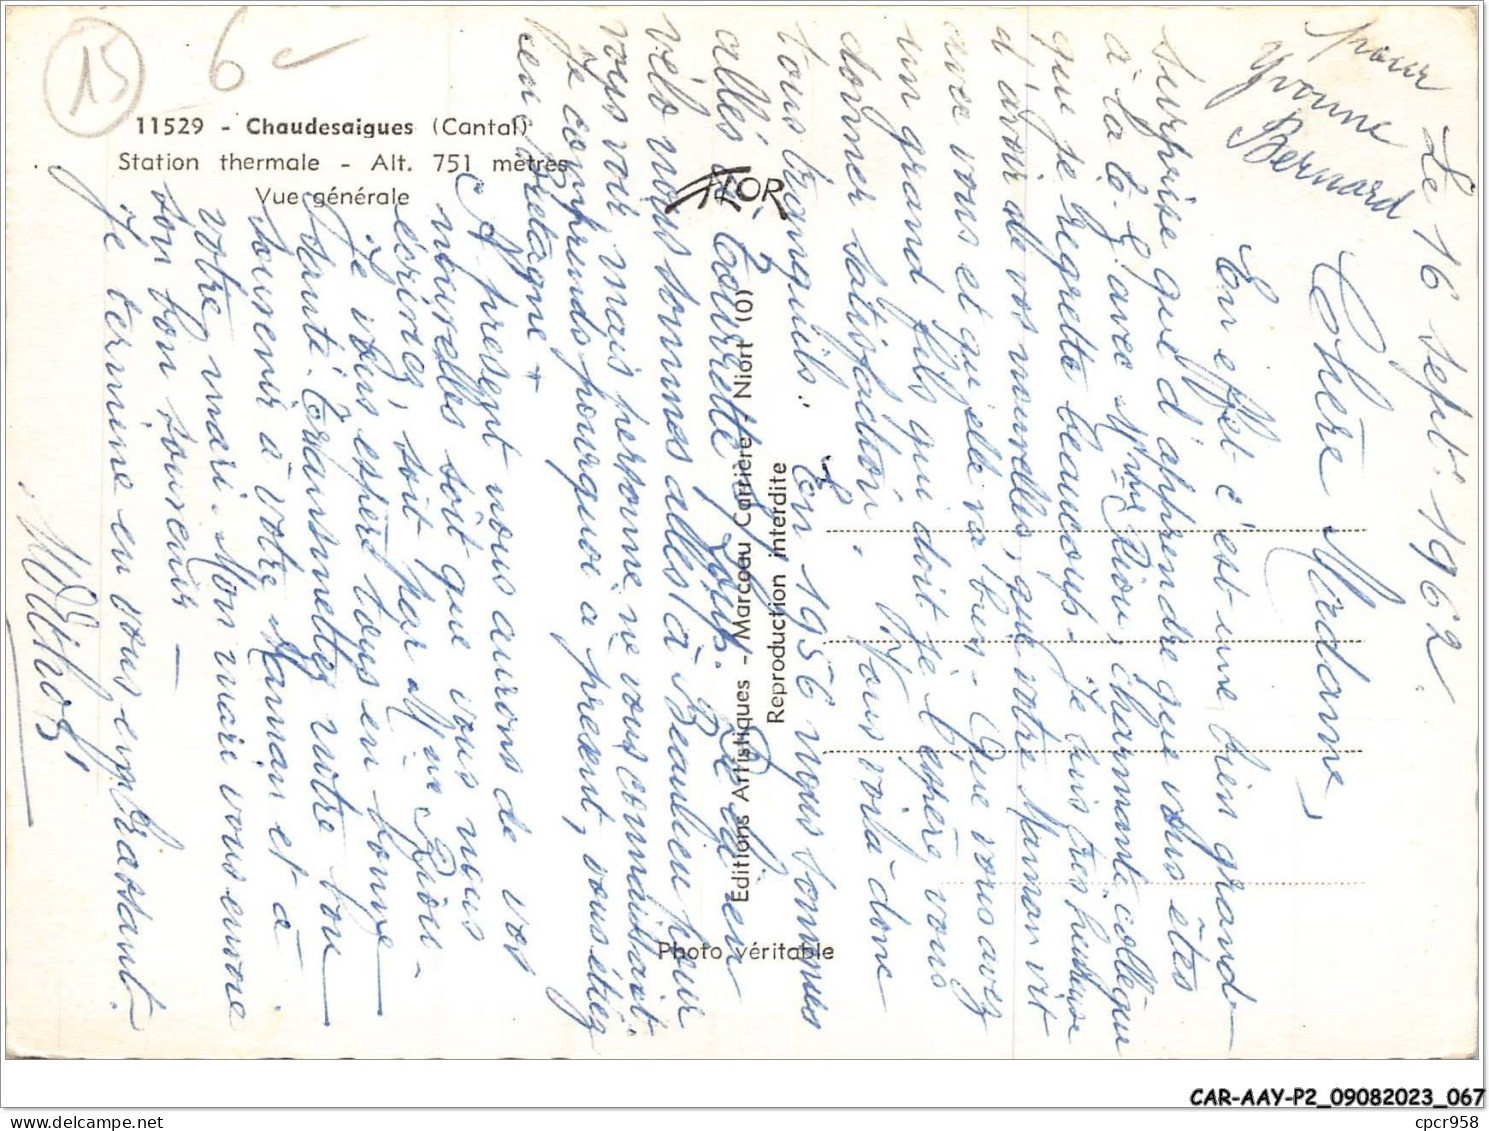 15
6
11529 - Chaudesaigues (Cantal)
Station thermale - Alt. 751 mètres
Vue générale
FLOR
Editions Artistiques - Marceau Carrière - Niort (0)
Reproduction interdite
Photo véritable
pour
Yvonne
Bernard
Le 16 Sept. 1962.
Chère Madame,
En effet c'est une bien grande
surprise que d'apprendre que vous êtes
à la avec Mme Riou, charmante collègue
que je regrette beaucoup. Je suis très heureuse
d'avoir de vos nouvelles, que votre Maman vit
avec vous et qu'elle va bien - Que vous avez
un grand fils qui doit je l'espère vous
donner satisfaction. Nous voilà donc
tous tranquils. En 1956 nous sommes
allés à Tourrette s/ Loup. De là en
vélo nous sommes allés à Beaulieu pour
vous voir mais personne ne vous connaissait.
Je comprends pourquoi à présent, vous étiez
en Bretagne +
A présent nous aurons de vos
nouvelles soit que vous nous
écrirez, soit par Mme Riou -
Je vous espère tous en bonne
santé. Transmettez notre bon
souvenir à votre Maman et à
votre mari. Mon mari vous envoie
son bon souvenir -
Je termine en vous embrassant.
CAR-AAY-P2_09082023_067
cpcr958